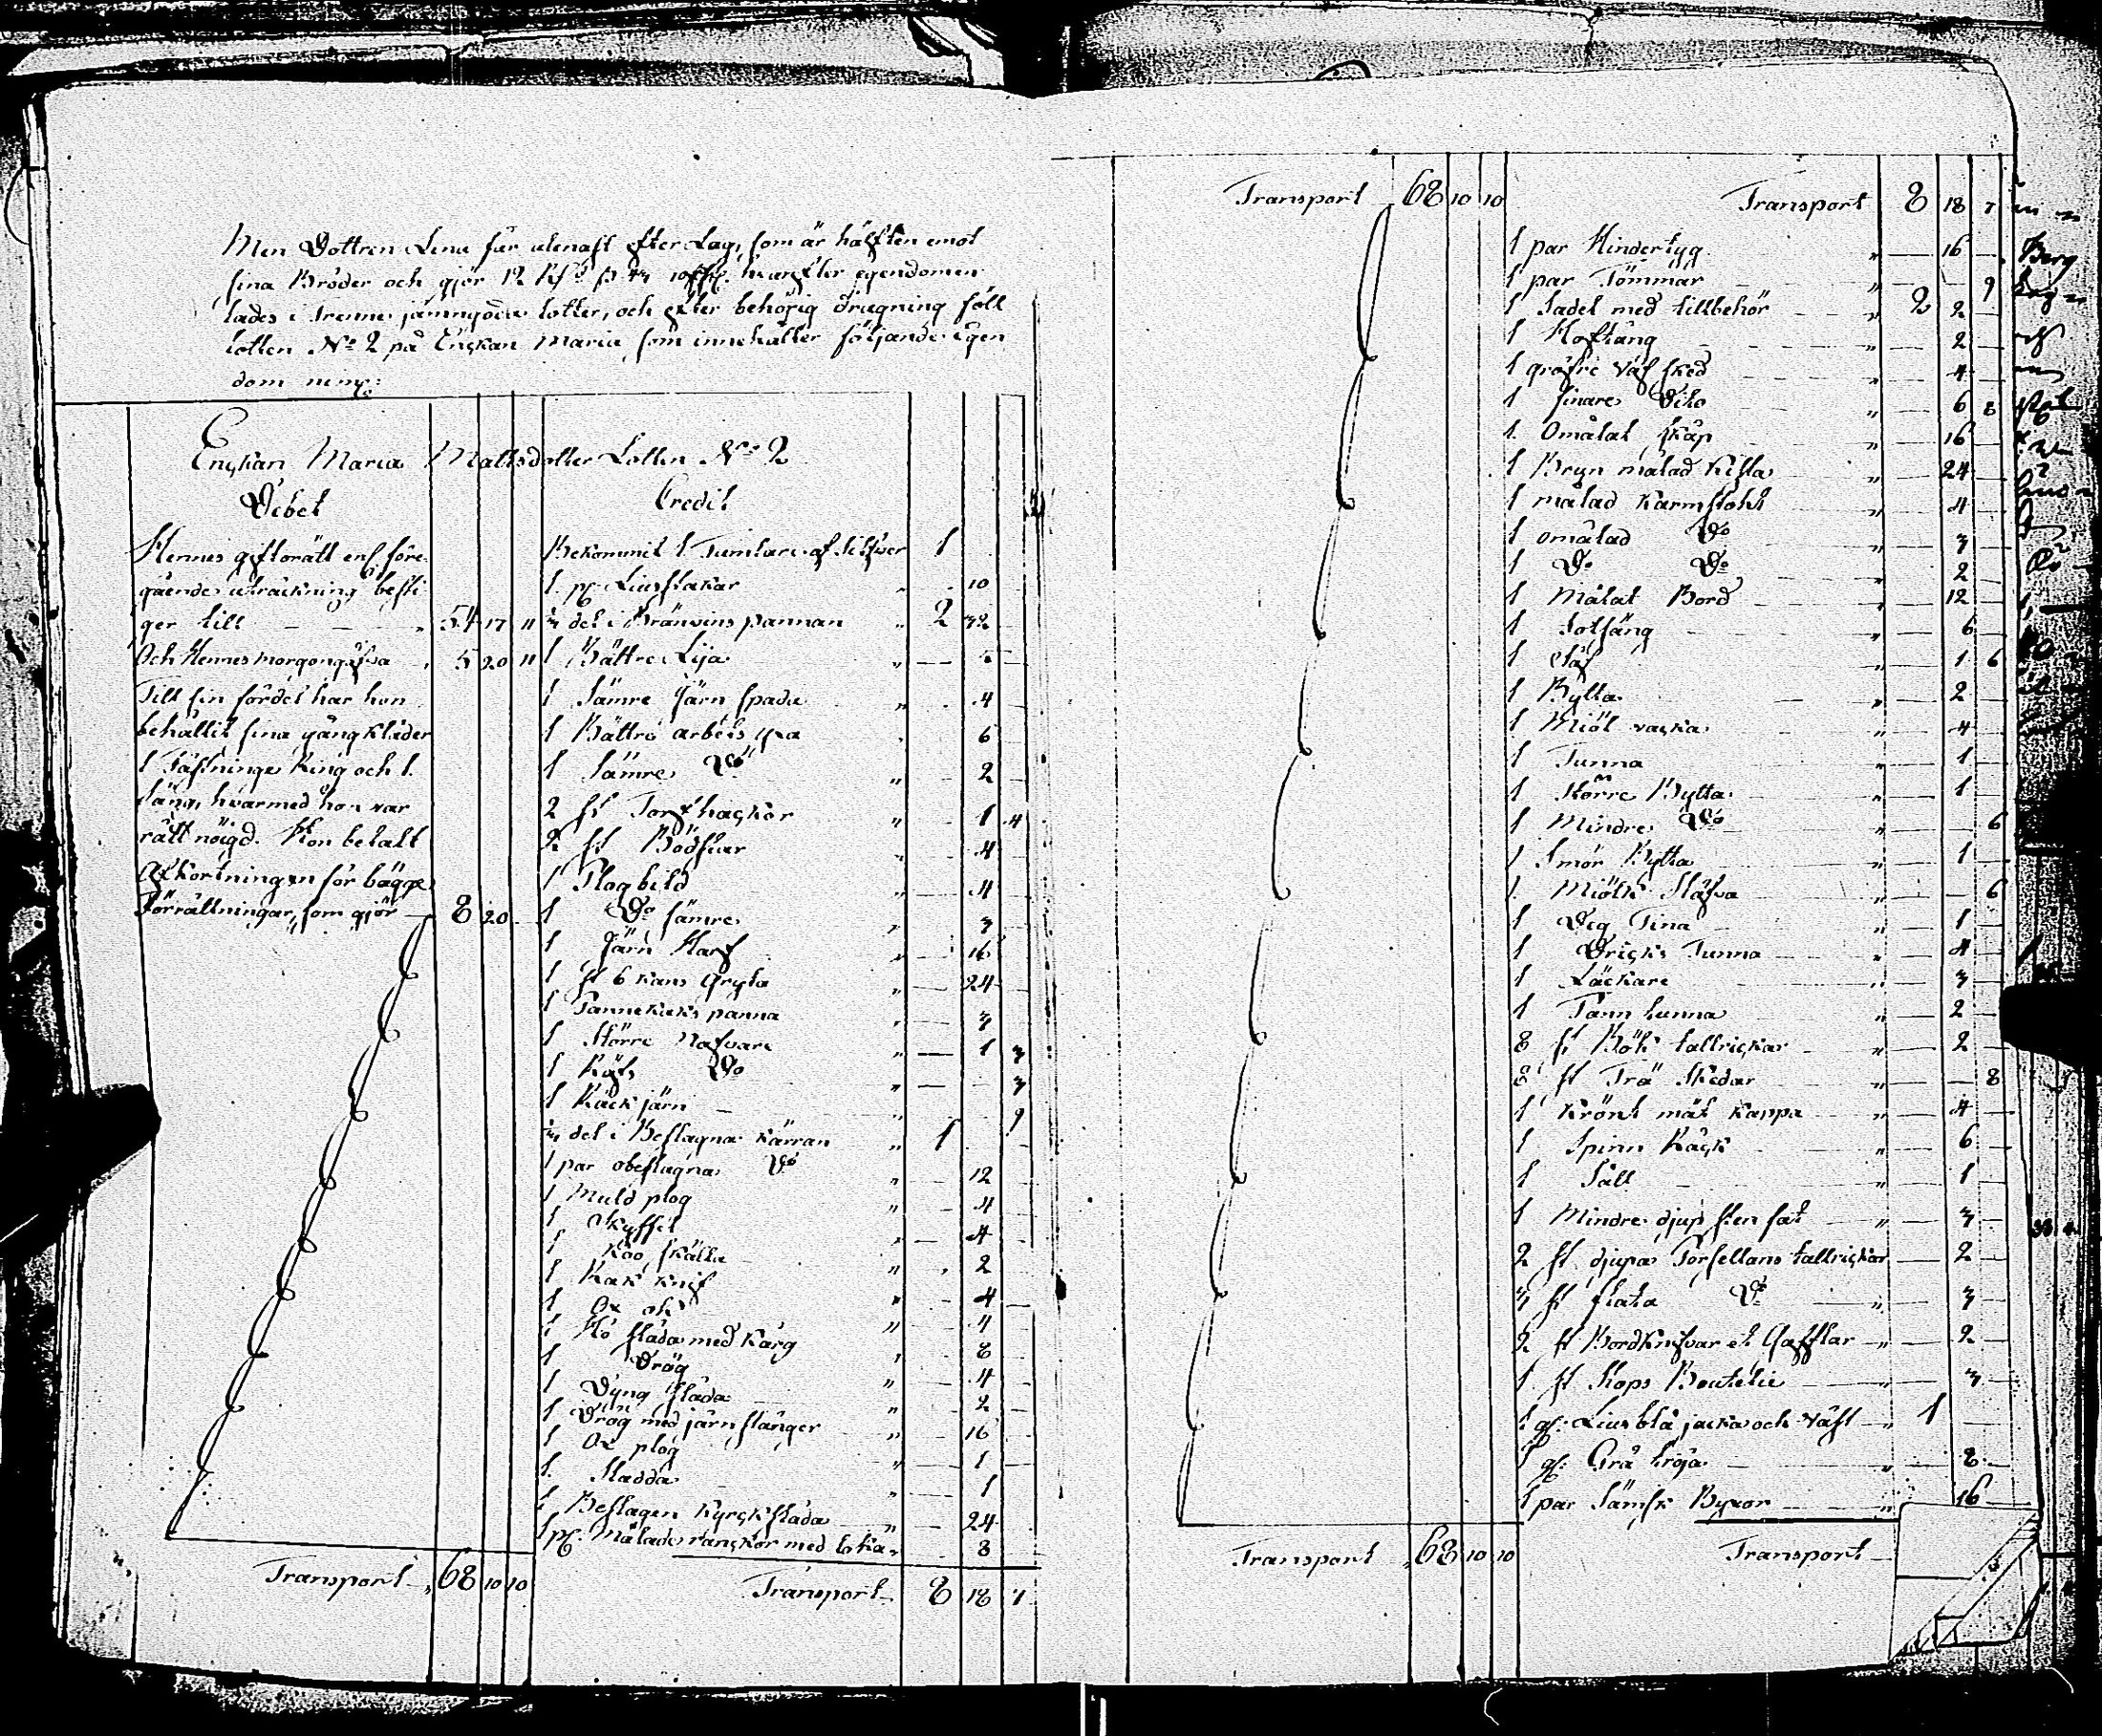 Men Dottren Lena får alenast efter Lag, som är hälften emot
sina Bröder och gjör 12 Rd hvarefter egendomen
lades i Trenne jämngoda lotter, och efter behörig dragning föll
lotten No 2 på Enckan Maria som innehåller följande Egen
dom neml:
Enckan Maria Mattsdotter Lotten No 2
Debet
Hennes giftorätt enl. före-
gående uträckning besti
ger till 54 17 11
Och Hennes morgongåfva 5 20 11
Till sin fördel har hon
behållit sina gångkläder
1 Fästninge Ring och 1
säng, hvarmed hon var
rätt nöigd. Hon betalt
Afkortningen för bägge
Förrättningar, som gjör 8 20
Transport 68 10 10
Credit
Bekommit 1 Tumlare af silfver 1
1 pr Liusstakar 10
⅓ del i Bränvins pannan 2 32
1 Bättre Lija
1 Sämre Järn spada 4
1 Bättre arbets yxa 6
1 Sämre Do 2
2 st Torfhackor 1 4
2 st 4
1 Plogbild 4
1 Do sämre 3
1 Järn Harf 16
1 st 6 Kans Gryta 24
1 Pannekaks panna 3
1 Större Nafvare 1 3
1 Do 3
1 9
⅓ del i Beslagna Kärran 1
1 par obeslagna Do 12
1 Muld plog 4
1 Skyffel 4
1 Koo skälla 2
1 Hak Knif 4
1 Ox ok 4
1 Hö släda med Karg 8
1 Drög 4
1 Dyng släda 2
1 Drög med järn stänger 16
1 Ox plog 1
1 Sladda 1
1 Beslagen Kyrckslada 24
1 pr Målade ranckor med 8
Transport 8 18 7
Transport 68 10 10
Transport 68 10 10
Transport 8 18 7
1 par Hindertyg 16
1 par Tömmar 9
1 Sadel med tillbehör 2 2
1 Hoftång 2
1 gröfre väf sked 4
1 finare Dito 6 8
1 Omålat skåp 16
1 Bryn målad Kista 24
1 målad Karmstohl 4
1 omålad Do 3
1 Do Do 2
1 Målat Bord 12
1 Sotsäng 6
1 Såf 1 6
1 Bytta 2
1 Miöl vacka 4
1 Tunna 1
1 Större Bytta 1
1 Mindre Do 6
1 Smör Bytta 1
1 Miölk Stäfva 6
1 Deg Tina 1
1 Dricks Tunna 4
1 Läckare 3
1 Tann tunna 2
8 st Bök tallrickar 2
8 st Trä Skedar 8
1 Krönt mät Kappa 4
1 Spinn Råck 6
1 Såll 1
1 Mindre djup sten fat 3
2 st djupa Porsellans tallrickar 2
3 st flata Do 3
2 st Bordknifvar et Gafflar 2
1 st Stops Boutelie 3
1 gl: Lius blå jacka och väst 1
1 gl: Grå tröja 8
1 par Sämsk Byxor 16
Transport